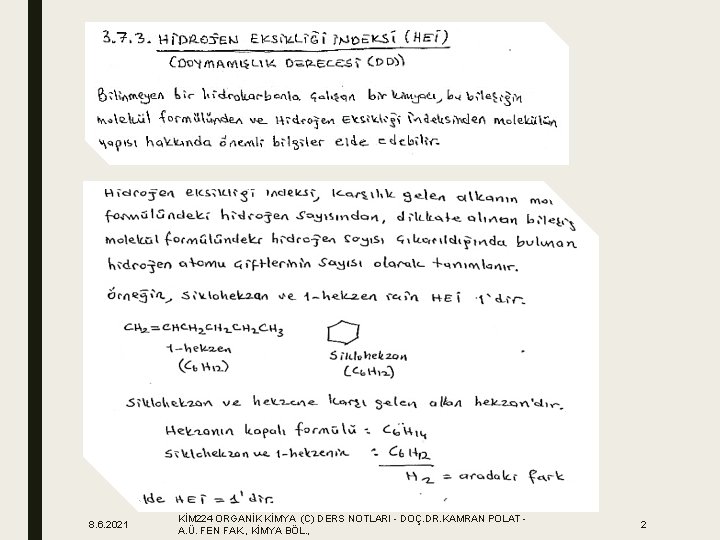 3.7.3. HİDROJEN EKSİKLİĞİ İNDEKSİ (HEİ)
(DOYMAMIŞLIK DERECESİ (DD))
Bilinmeyen bir hidrokarbonla çalışan bir kimyacı, bu bileşiğin
molekül formülünden ve Hidrojen Eksikliği İndeksinden molekülün
yapısı hakkında önemli bilgiler elde edebilir.
Hidrojen eksikliği indeksi, karşılık gelen alkanın mol
formülündeki hidrojen sayısından, dikkate alınan bileşiğ
molekül formülündeki hidrojen sayısı çıkarıldığında bulunan
hidrojen atomu çiftlerinin sayısı olarak tanımlanır.
Örneğin, siklohekzan ve 1-hekzen için HEİ 1'dir.
CH2=CHCH2CH2CH2CH3
1-hekzen
(C6H12)
Siklohekzan
(C6H12)
Siklohekzan ve hekzene karşı gelen alkan hekzan'dır.
Hekzanın kapalı formülü = C6H14
Siklohekzan ve 1-hekzenin = C6H12
H2 = aradaki fark
ide HEİ = 1'dir.
8.6.2021
KİM224 ORGANİK KİMYA (C) DERS NOTLARI - DOÇ.DR.KAMRAN POLAT -
A.Ü. FEN FAK., KİMYA BÖL.,
2